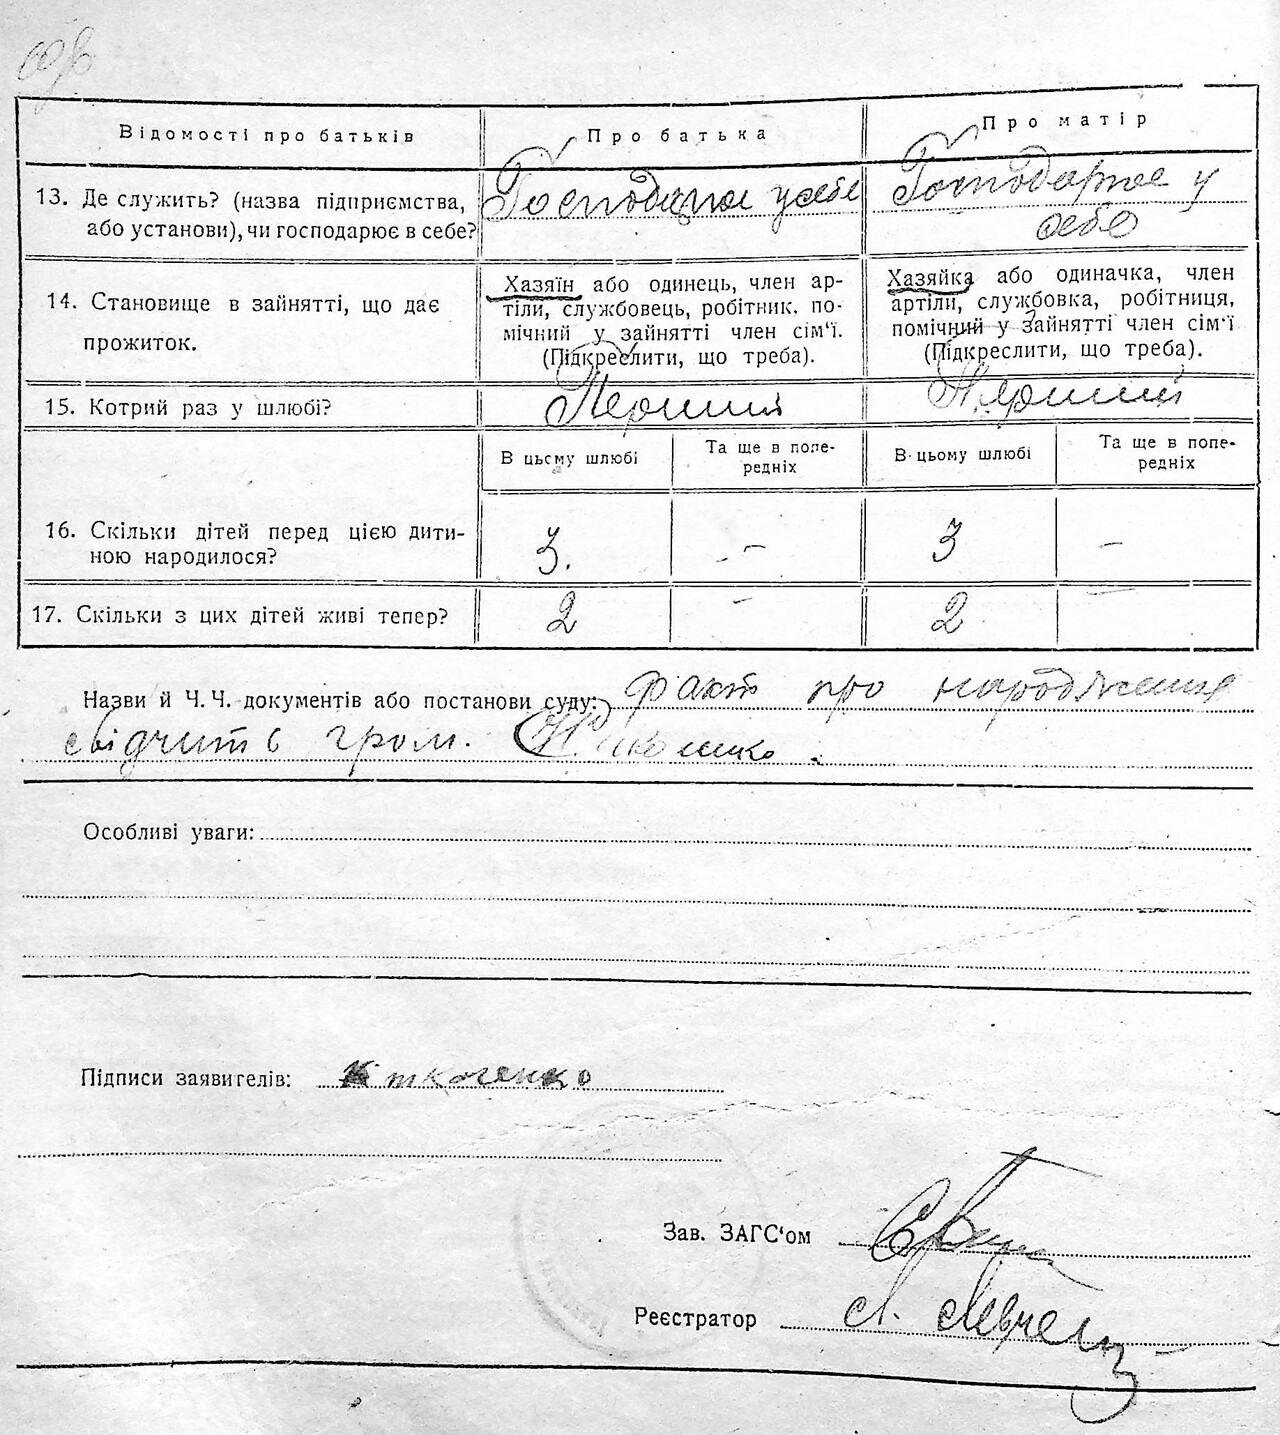 Відомості про батьків
Про батька
Про матір
13. Де служить? (назва підприємства,
або установи), чи господарює в себе?
Господарює у себе
Господарює у
себе
14. Становище в зайнятті, що дає
прожиток.
Хазяїн або одинець, член ар-
тіли, службовець, робітник, по-
мічний у зайнятті член сім'ї.
(Підкреслити, що треба).
Хазяйка або одиначка, член
артіли, службовка, робітниця,
помічний у зайнятті член сім'ї
(Підкреслити, що треба).
15. Котрий раз у шлюбі?
Перший
Перший
В цьому шлюбі
Та ще в попе-
редніх
В цьому шлюбі
Та ще в попе-
редніх
16. Скільки дітей перед цією дити-
ною народилося?
3.
–
3
–
17. Скільки з цих дітей живі тепер?
2
–
2
–
Назви й Ч. Ч. документів або постанови суду: факт про народження
свідчить гром.
Особливі уваги:
Підписи заявителів:
Зав. ЗАГС'ом
Реєстратор